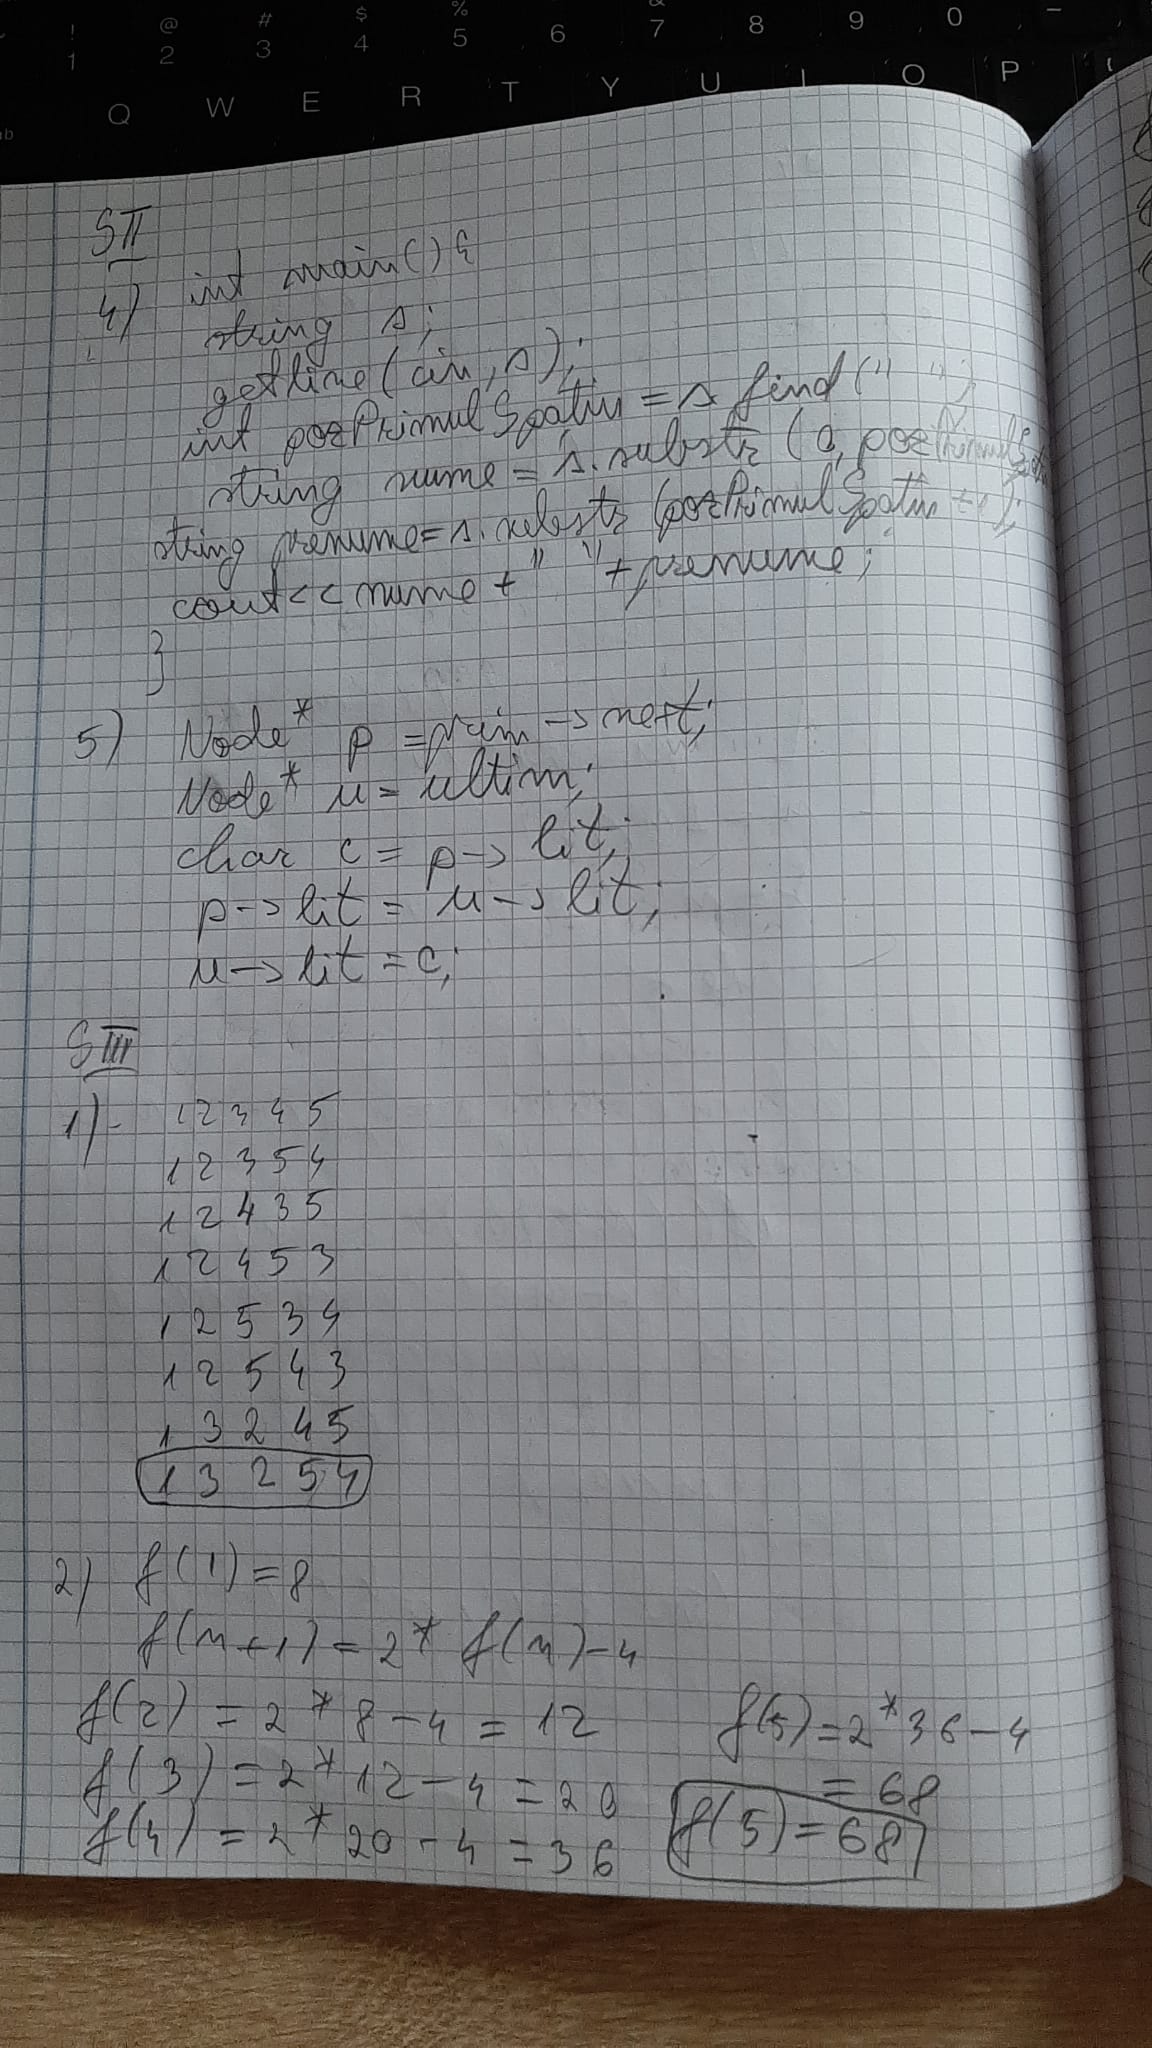 ! @ # $ % & – 
1 2 3 4 5 6 7 8 9 0
Q W E R T Y U I O P
SII
4) int main(){
string s;
getline(cin, s);
int pozPrimulSpatiu = s find(" ");
string nume = s.substr(0, pozPrimulSpatiu
string prenume = s.substr(pozPrimulSpatiu +1);
cout<< nume + " " + prenume;
}
5) Node* p = prim -> next;
Node* u = ultim;
char c = p -> lit;
p -> lit = u -> lit;
u -> lit = c;
SIII
1) - 1 2 3 4 5
1 2 3 5 4
1 2 4 3 5
1 2 4 5 3
1 2 5 3 4
1 2 5 4 3
1 3 2 4 5
1 3 2 5 4
2) f(1) = 8
f(n+1) = 2* f(n) - 4
f(2) = 2 * 8 - 4 = 12
f(3) = 2 * 12 - 4 = 20
f(4) = 2 * 20 - 4 = 36
f(5) = 2 * 36 - 4
= 68
f(5) = 68